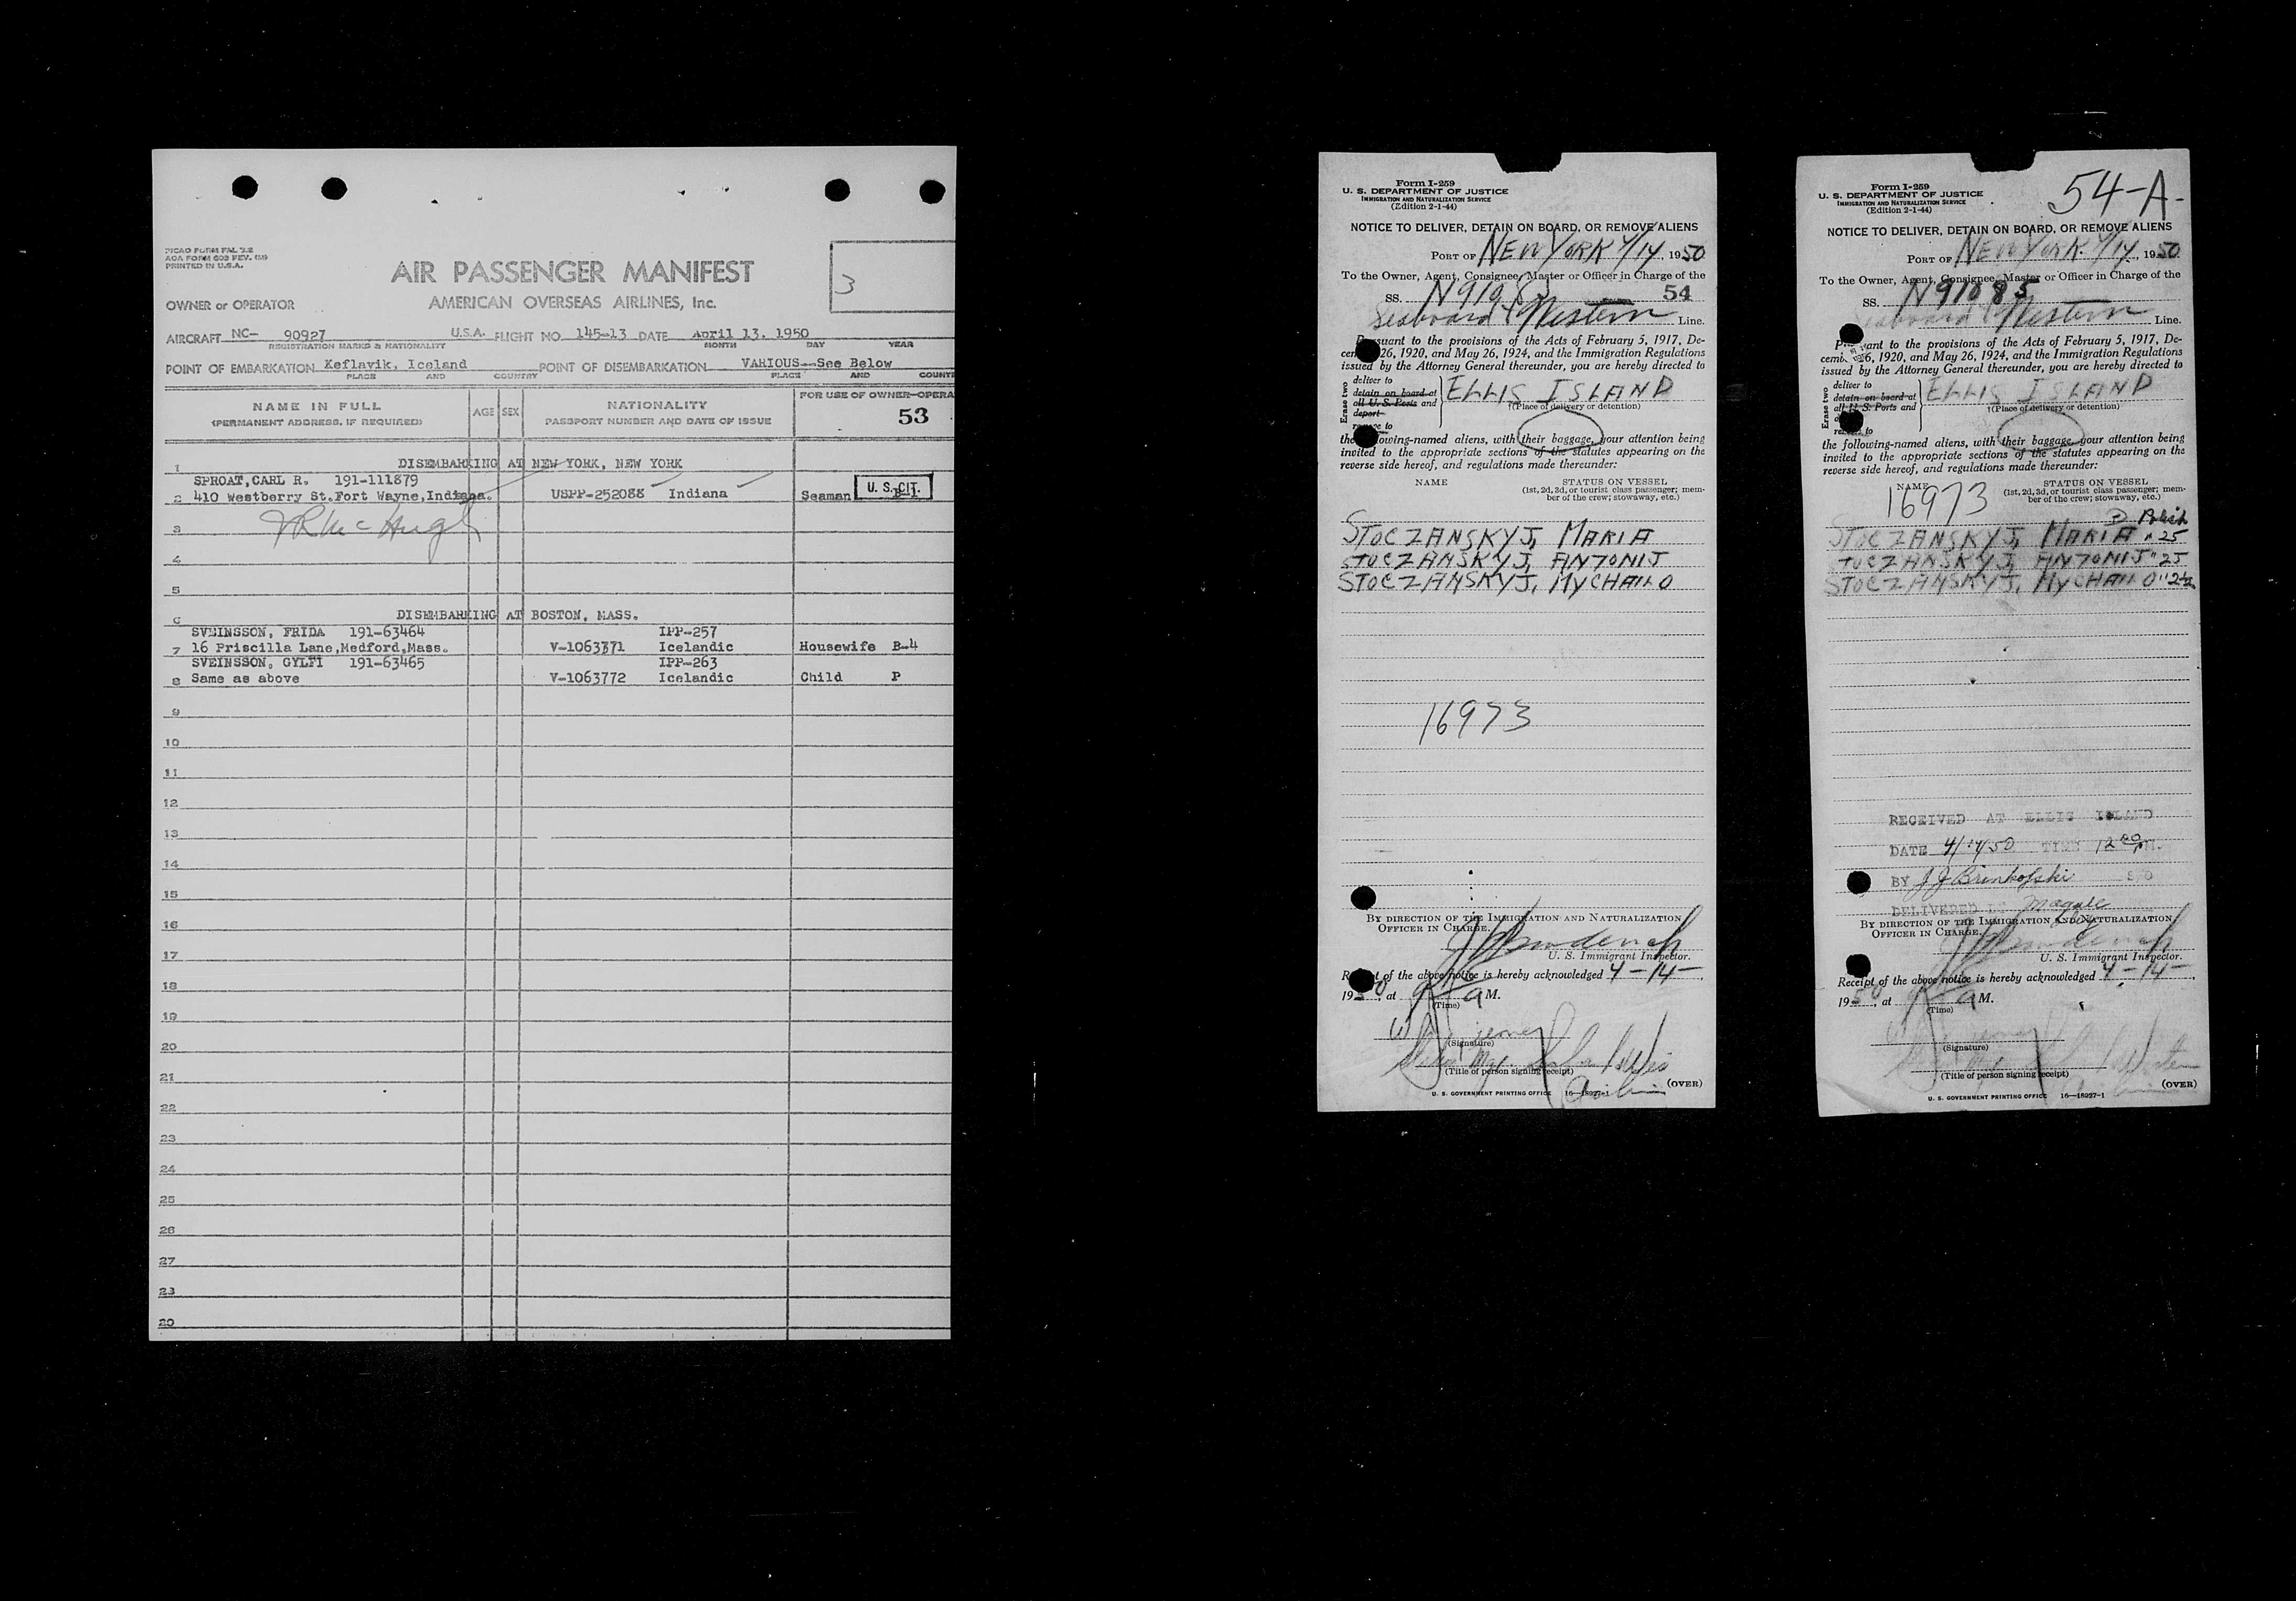 PICAO FORM FAL 2.2
AOA FORM 602 REV.
PRINTED IN U.S.A.
AIR PASSENGER MANIFEST
3
OWNER or OPERATOR AMERICAN OVERSEAS AIRLINES, Inc.
AIRCRAFT NC- 90927 U.S.A. FLIGHT NO. 145-13 DATE April 13, 1950
REGISTRATION MARKS & NATIONALITY MONTH DAY YEAR
POINT OF EMBARKATION Keflavik, Iceland POINT OF DISEMBARKATION VARIOUS--See Below
PLACE AND COUNTRY PLACE AND COUNT
NAME IN FULL AGE SEX NATIONALITY FOR USE OF OWNER-OPERA
(PERMANENT ADDRESS, IF REQUIRED) PASSPORT NUMBER AND DATE OF ISSUE 53
1 DISEMBARKING AT NEW YORK, NEW YORK
SPROAT,CARL R. 191-111879
2 410 Westberry St.Fort Wayne,Indiana. USPP-252088 Indiana Seaman U. S. CIT.
3 JR McHugh
4
5
6 DISEMBARKING AT BOSTON, MASS.
SVEINSSON, FRIDA 191-63464 IPP-257
7 16 Priscilla Lane,Medford,Mass. V-1063771 Icelandic Housewife B-4
SVEINSSON, GYLFI 191-63465 IPP-263
8 Same as above V-1063772 Icelandic Child P
9
10
11
12
13
14
15
16
17
18
19
20
21
22
23
24
25
26
27
28
29
Form I-259
U. S. DEPARTMENT OF JUSTICE
IMMIGRATION AND NATURALIZATION SERVICE
(Edition 2-1-44)
NOTICE TO DELIVER, DETAIN ON BOARD, OR REMOVE ALIENS
PORT OF NEW YORK 4/14, 1950
To the Owner, Agent, Consignee, Master or Officer in Charge of the
SS. N91085 54
Seaboard & Western Line.
Pursuant to the provisions of the Acts of February 5, 1917, De-
cem 26, 1920, and May 26, 1924, and the Immigration Regulations
issued by the Attorney General thereunder, you are hereby directed to
Erase two
deliver to
detain on board at
all U. S. Ports and
deport
ELLIS ISLAND
†(Place of delivery or detention)
the owing-named aliens, with their baggage, your attention being
invited to the appropriate sections of the statutes appearing on the
reverse side hereof, and regulations made thereunder:
NAME STATUS ON VESSEL
(1st, 2d, 3d, or tourist class passenger; mem-
ber of the crew; stowaway, etc.)
STOCZANSKYJ, MARIA
STOCZANSKYJ, ANTONIJ
STOCZANSKYJ, MYCHAILO
16973
BY DIRECTION OF THE IMMIGRATION AND NATURALIZATION
OFFICER IN CHARGE.
U. S. Immigrant Inspector.
Receipt of the above notice is hereby acknowledged 4-14-
1950, at 9 a M.
(Time)
(Signature)
(Title of person signing receipt)
(OVER)
U. S. GOVERNMENT PRINTING OFFICE 16—18027-1
Form I-259
U. S. DEPARTMENT OF JUSTICE
IMMIGRATION AND NATURALIZATION SERVICE
(Edition 2-1-44)
54-A-
NOTICE TO DELIVER, DETAIN ON BOARD, OR REMOVE ALIENS
PORT OF NEW YORK 4/14, 1950
To the Owner, Agent, Consignee, Master or Officer in Charge of the
SS. N91085
Seaboard & Western Line.
P ant to the provisions of the Acts of February 5, 1917, De-
cemb. 26, 1920, and May 26, 1924, and the Immigration Regulations
issued by the Attorney General thereunder, you are hereby directed to
Erase two
deliver to
detain on board at
all U. S. Ports and
ELLIS ISLAND
†(Place of delivery or detention)
the following-named aliens, with their baggage, your attention being
invited to the appropriate sections of the statutes appearing on the
reverse side hereof, and regulations made thereunder:
NAME STATUS ON VESSEL
16973
(1st, 2d, 3d, or tourist class passenger; mem-
ber of the crew; stowaway, etc.)
Polish
STOCZANSKYJ, MARIA " 25
STOCZANSKYJ, ANTONIJ " 25
STOCZANSKYJ, MYCHAILO " 2½
RECEIVED AT ELLIS ISLAND
DATE 4/14/50 TIME 12 00 P.M.
BY J J Brinkofski
DELIVERED BY
BY DIRECTION OF THE IMMIGRATION AND NATURALIZATION
OFFICER IN CHARGE.
U. S. Immigrant Inspector.
Receipt of the above notice is hereby acknowledged 4-14-
1950, at 9 a M.
(Time)
(Signature)
(Title of person signing receipt)
(OVER)
U. S. GOVERNMENT PRINTING OFFICE 16—18027-1